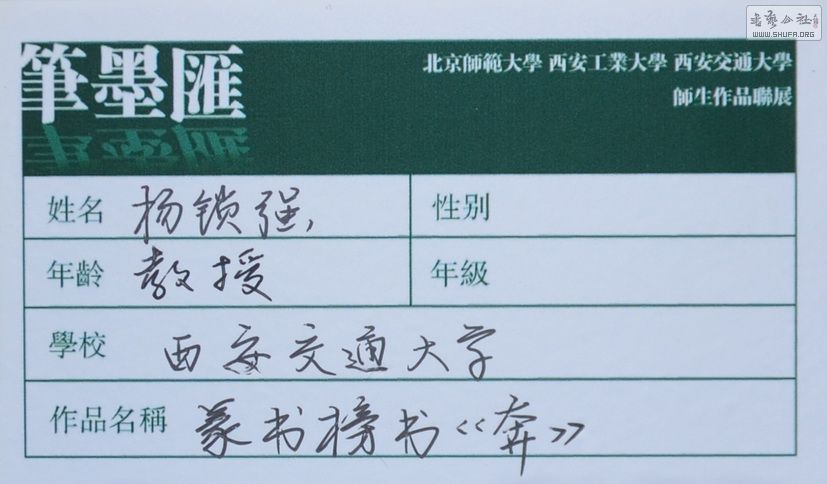 書藝公社
WWW.SHUFA.ORG
筆墨匯
北京師範大學 西安工業大學 西安交通大學
師生作品聯展
姓名 杨锁强 性别
年齡 教授 年級
學校 西安交通大学
作品名稱 篆书榜书《奔》